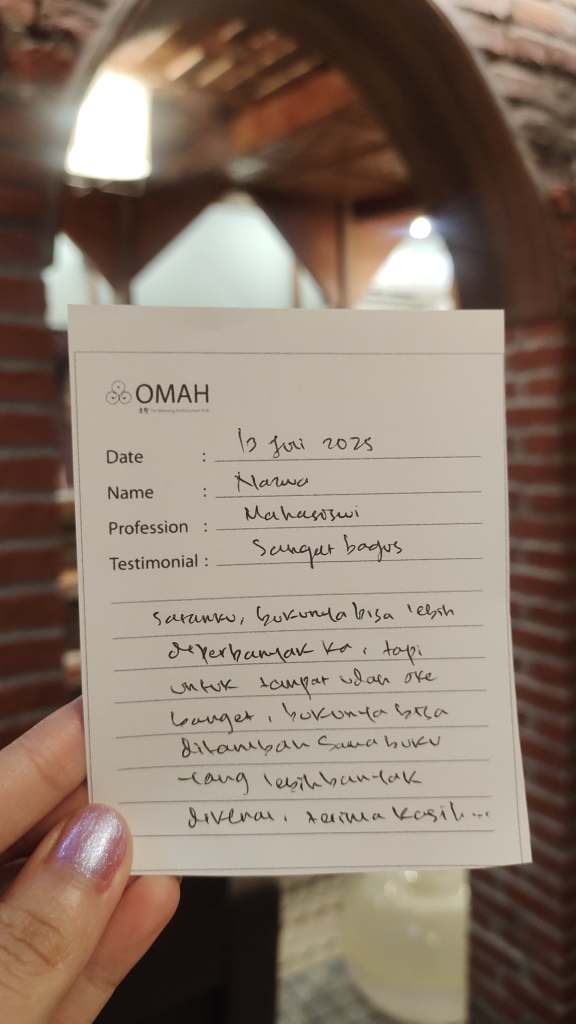 OMAH
Date : 13 Juli 2025
Name : Nazwa
Profession : Mahasiswi
Testimonial : Sangat bagus
Saranku, bukunya bisa lebih
diperbanyak ka, tapi
untuk tempat udah oke
banget, bukunya bisa
ditambah sama buku
yang lebih banyak
dikenal, terima kasih...